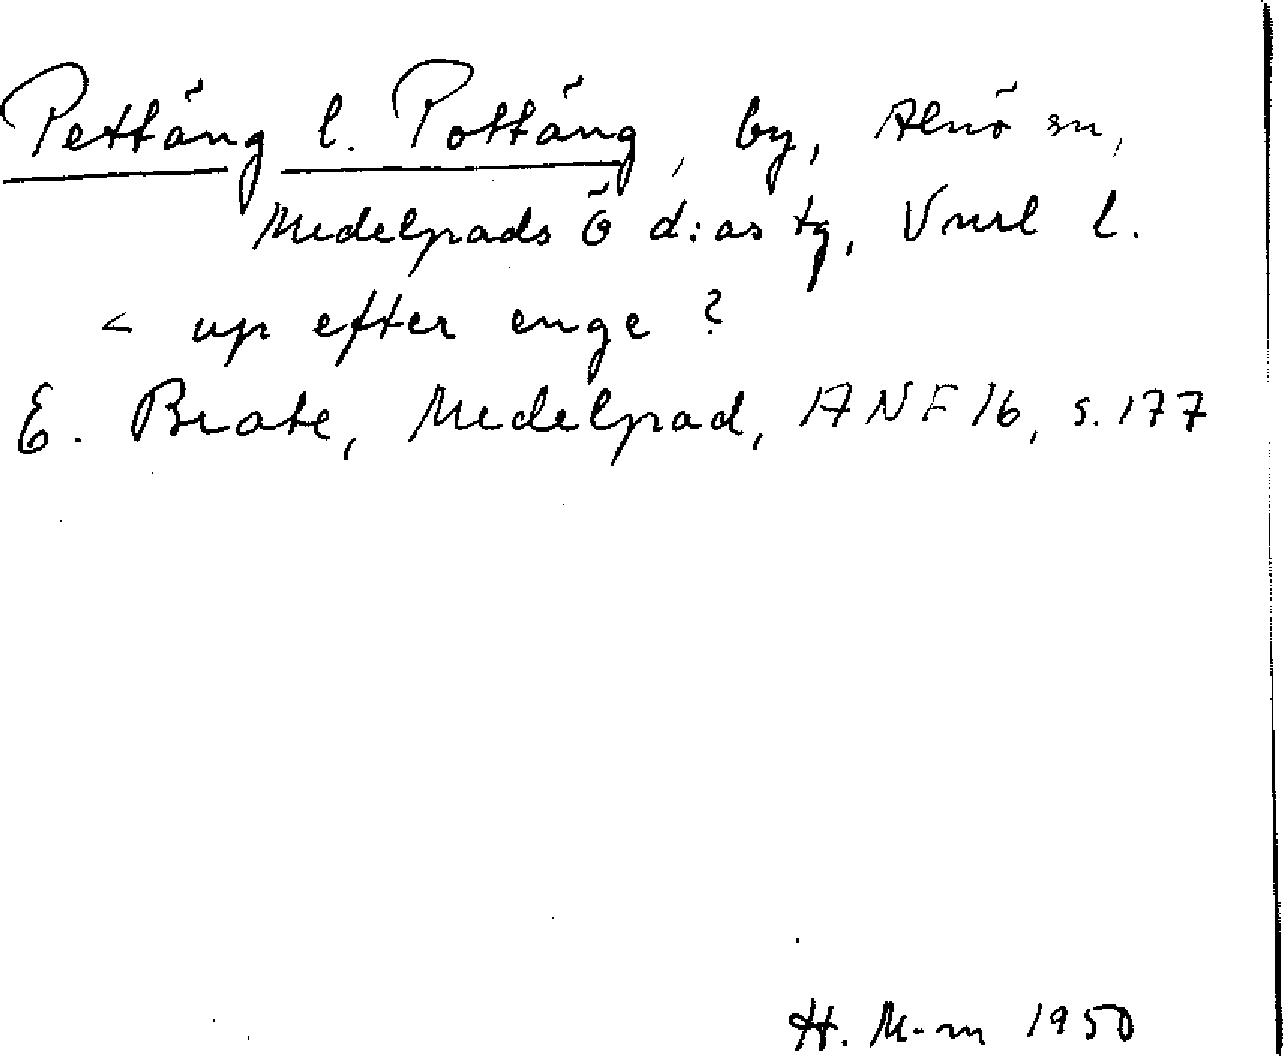 Pettäng l. Pottäng, by, Alnö sn,
Medelpads Ö d:as tg, Vnrl l.
< up efter enge ?
E. Brate, Medelpad, ANF 16, s. 177
H. M-m 1950